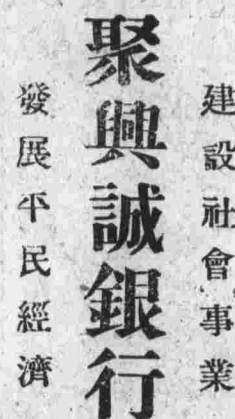 建設社會事業
聚興誠銀行
發展平民經濟